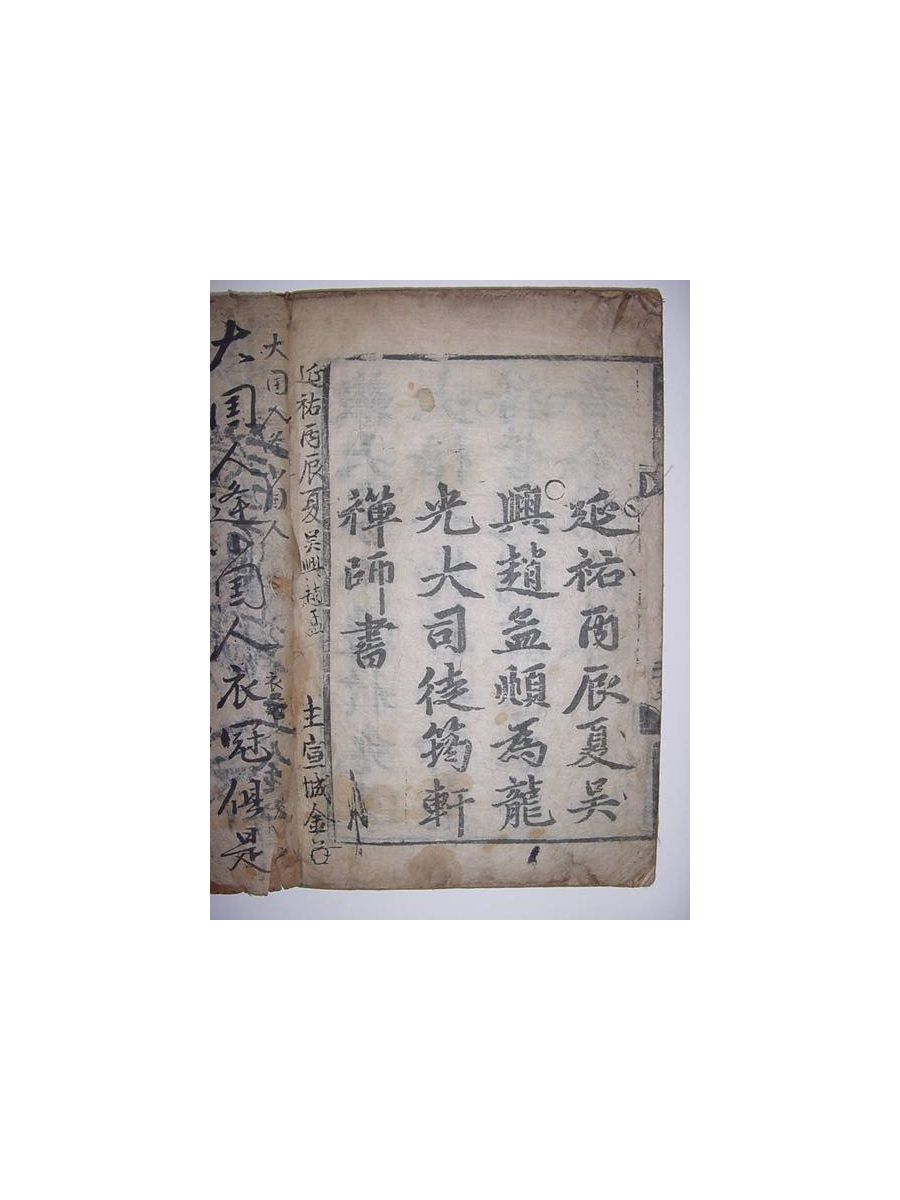 延祐丙辰夏吳
興趙孟頫為龍
光大司徒筠軒
禪師書
延祐丙辰夏吳興趙孟
主宣城金
大国人逢小国人衣冠俱是